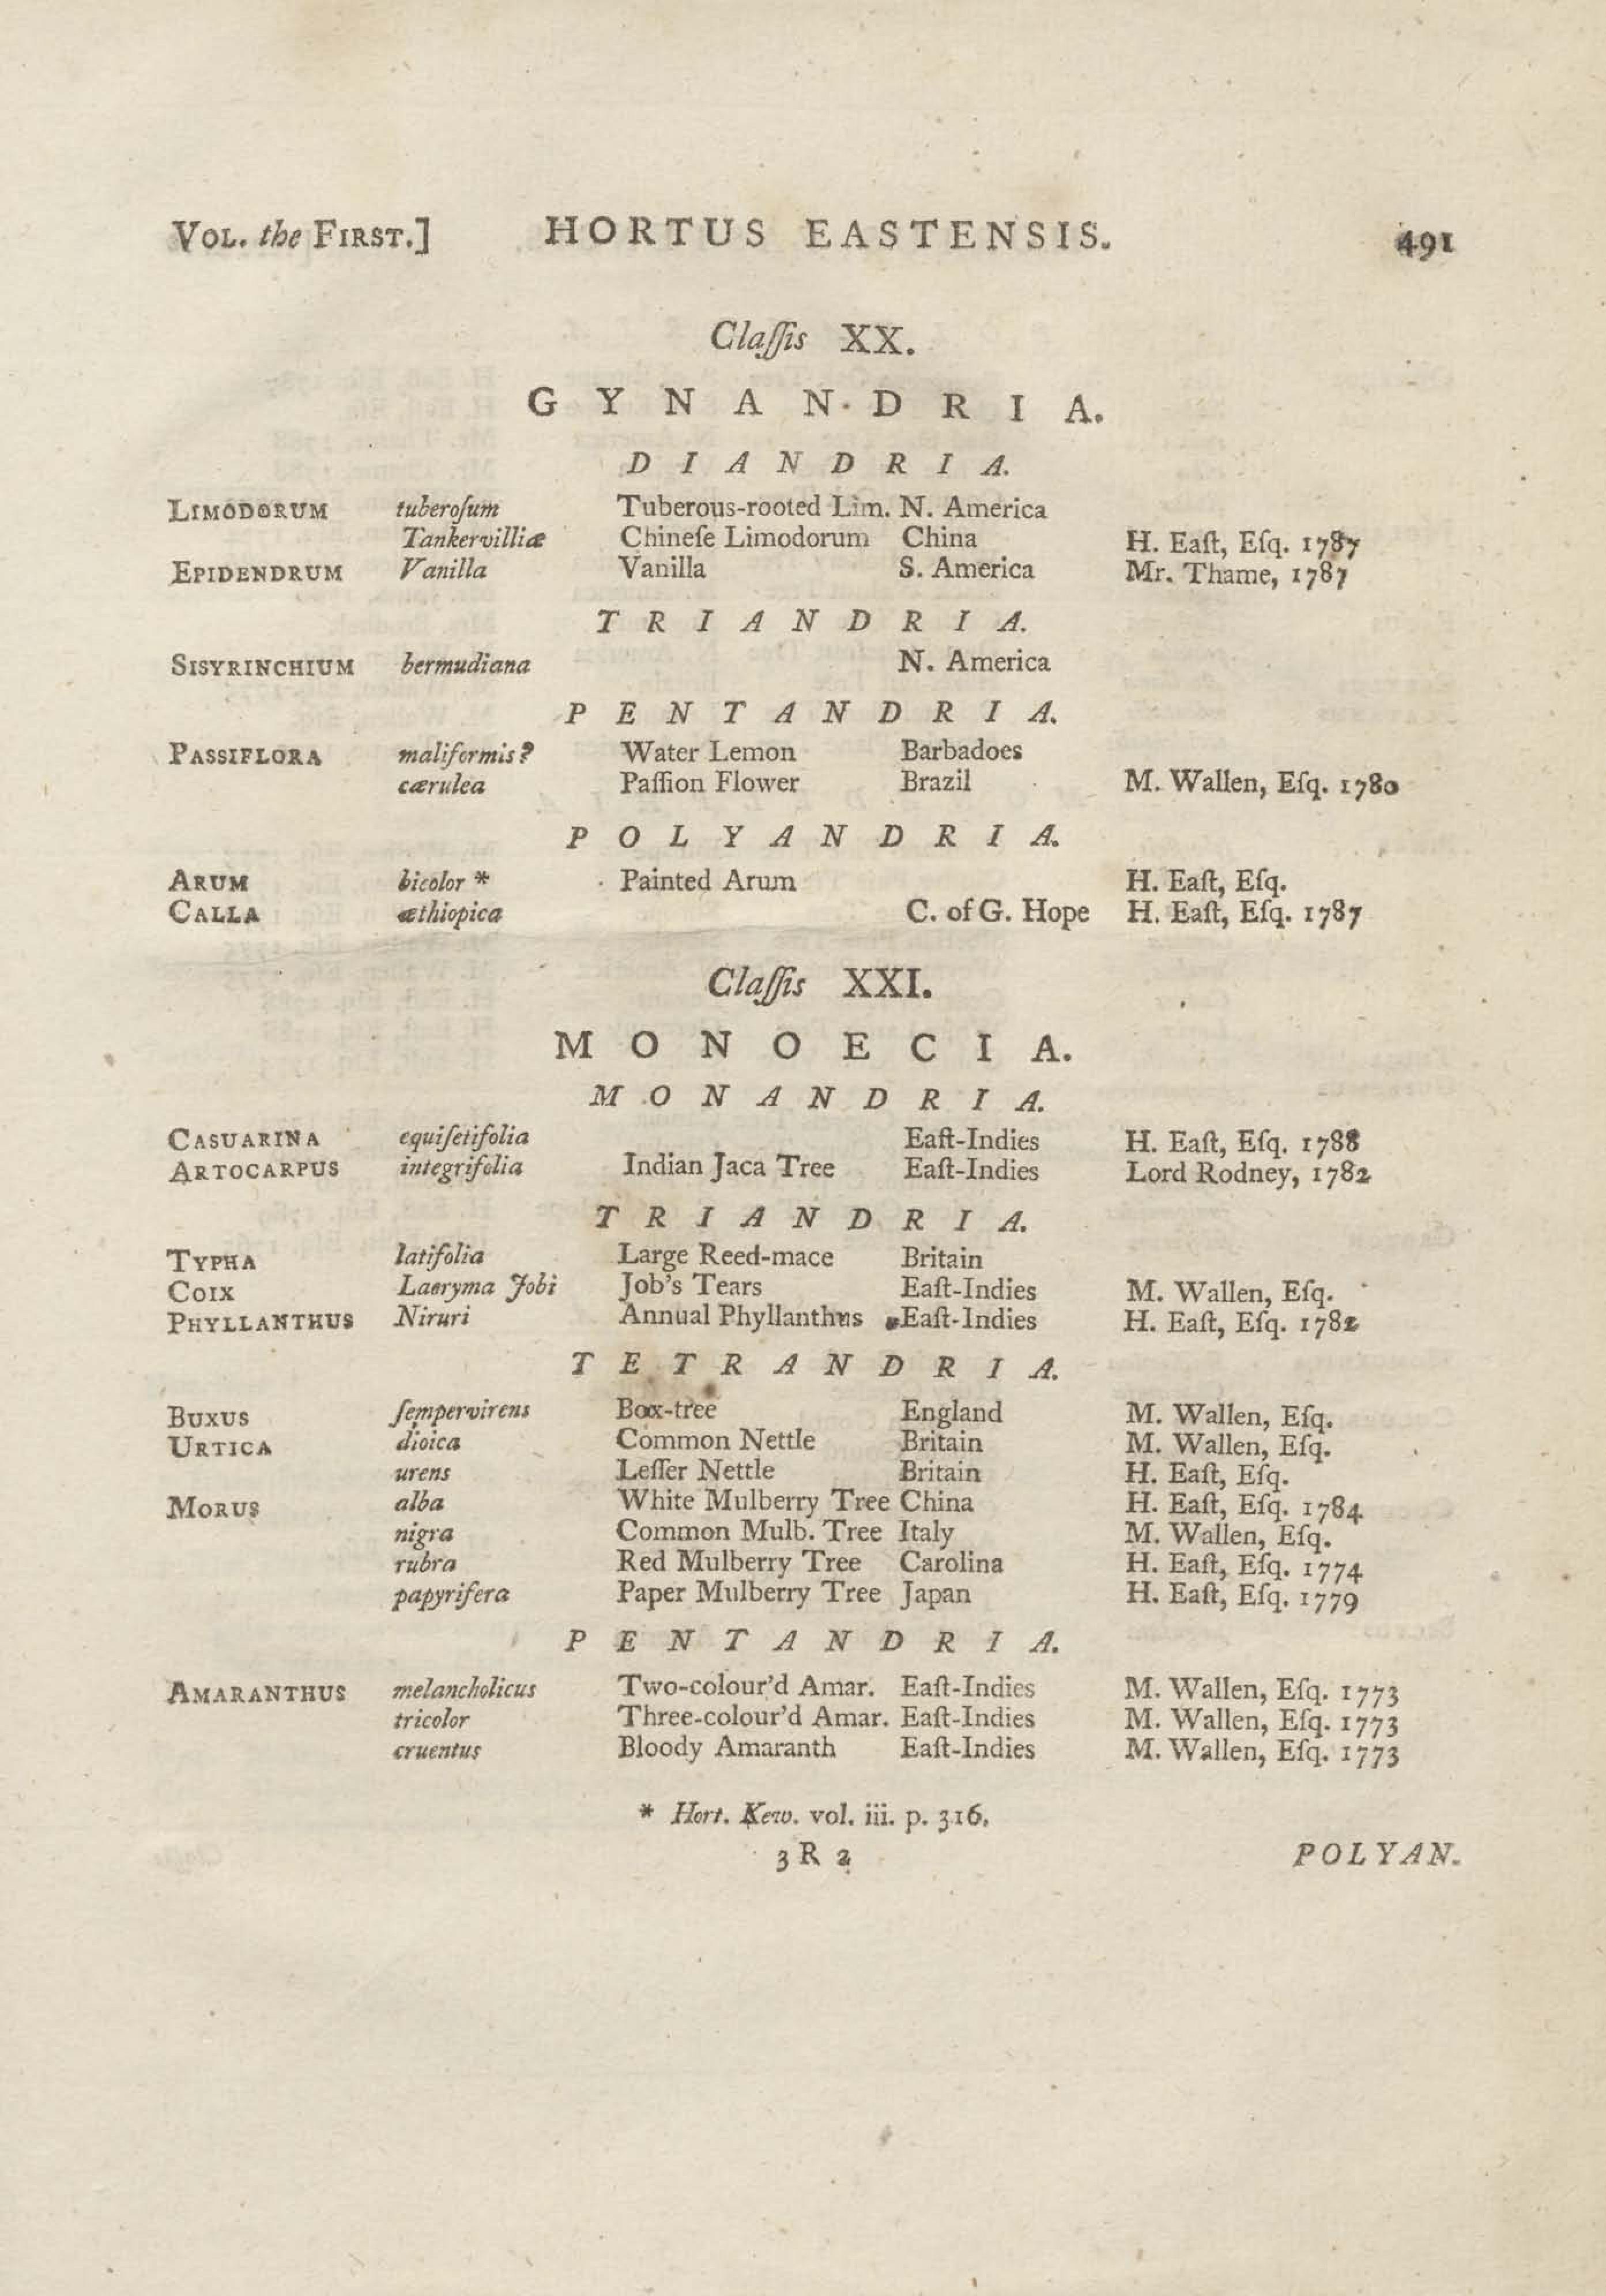 VOL. the FIRST.] HORTUS EASTENSIS. 491
Claſſis XX.
GYNANDRIA.
DIANDRIA.
LIMODORUM tuberoſum Tuberous-rooted Lim. N. America
Tankervilliæ Chineſe Limodorum China H. Eaſt, Eſq. 1787
EPIDENDRUM Vanilla Vanilla S. America Mr. Thame, 1787
TRIANDRIA.
SISYRINCHIUM bermudiana N. America
PENTANDRIA.
PASSIFLORA maliformis? Water Lemon Barbadoes
cærulea Paſſion Flower Brazil M. Wallen, Eſq. 1780
POLYANDRIA.
ARUM bicolor * Painted Arum H. Eaſt, Eſq.
CALLA æthiopica C. of G. Hope H. Eaſt, Eſq. 1787
Claſſis XXI.
MONOECIA.
MONANDRIA.
CASUARINA equiſetifolia Eaſt-Indies H. Eaſt, Eſq. 1788
ARTOCARPUS integrifolia Indian Jaca Tree Eaſt-Indies Lord Rodney, 1782
TRIANDRIA.
TYPHA latifolia Large Reed-mace Britain
COIX Lacryma Jobi Job's Tears Eaſt-Indies M. Wallen, Eſq.
PHYLLANTHUS Niruri Annual Phyllanthus Eaſt-Indies H. Eaſt, Eſq. 1782
TETRANDRIA.
BUXUS ſempervirens Box-tree England M. Wallen, Eſq.
URTICA dioica Common Nettle Britain M. Wallen, Eſq.
urens Leſſer Nettle Britain H. Eaſt, Eſq.
MORUS alba White Mulberry Tree China H. Eaſt, Eſq. 1784
nigra Common Mulb. Tree Italy M. Wallen, Eſq.
rubra Red Mulberry Tree Carolina H. Eaſt, Eſq. 1774
papyrifera Paper Mulberry Tree Japan H. Eaſt, Eſq. 1779
PENTANDRIA.
AMARANTHUS melancholicus Two-colour'd Amar. Eaſt-Indies M. Wallen, Eſq. 1773
tricolor Three-colour'd Amar. Eaſt-Indies M. Wallen, Eſq. 1773
cruentus Bloody Amaranth Eaſt-Indies M. Wallen, Eſq. 1773
* Hort. Kew. vol. iii. p. 316.
3 R 2 POLYAN.